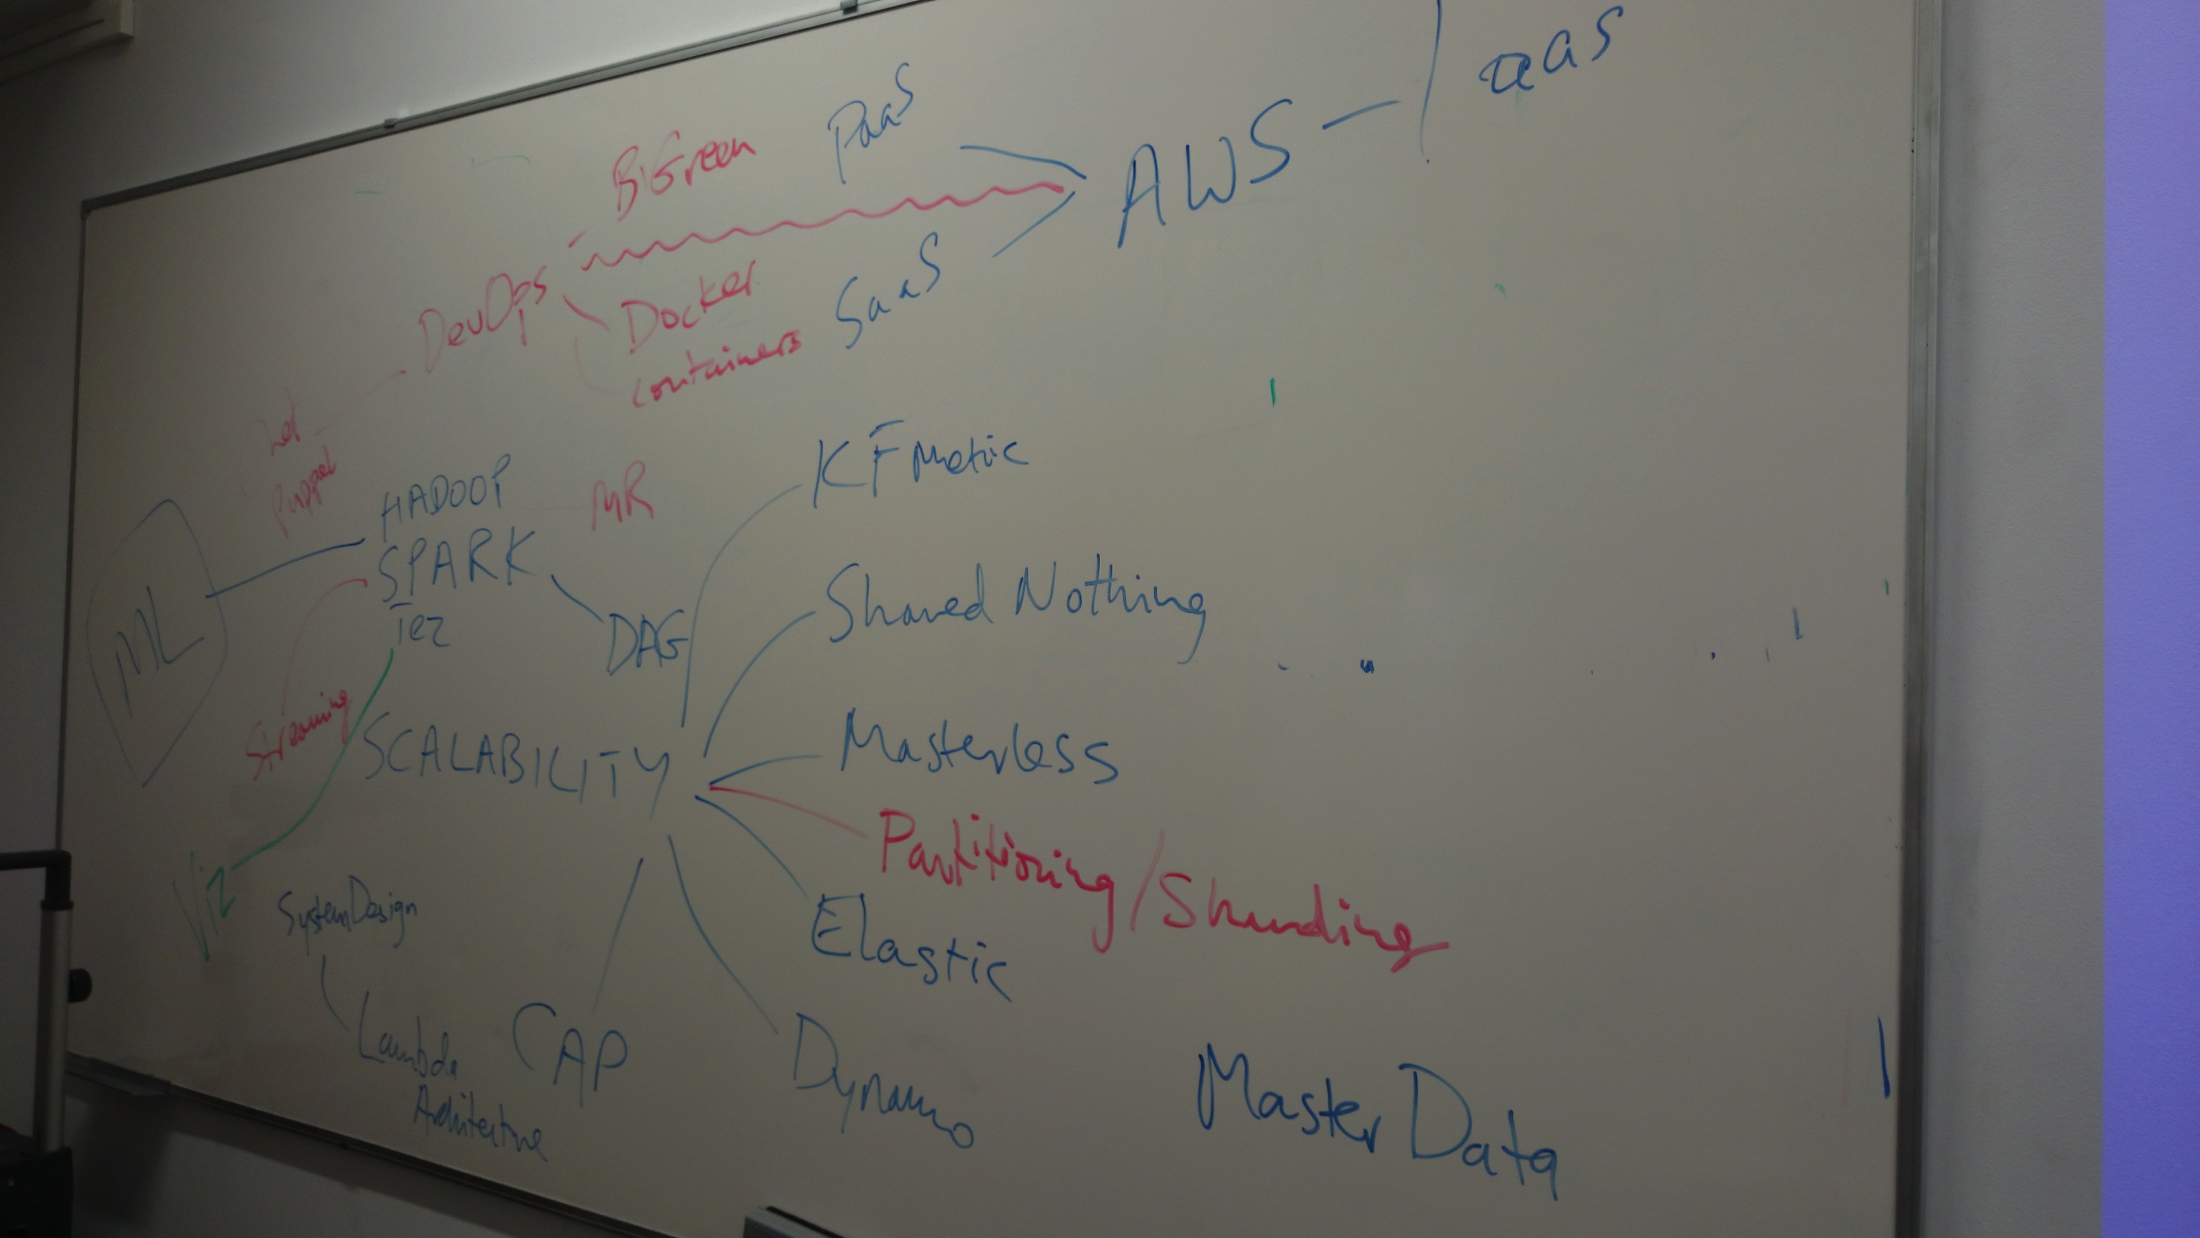 IaaS
PaaS
AWS
BiGreen
SaaS
DevOps
Docker
containers
Puppet
KF Metric
HADOOP
MR
SPARK
Tez
Shared Nothing
DAG
ML
Streaming
SCALABILITY
Masterless
Partitioning/Sharding
Viz
SystemDesign
Elastic
Lambda
Architecture
CAP
Dynamo
Master Data